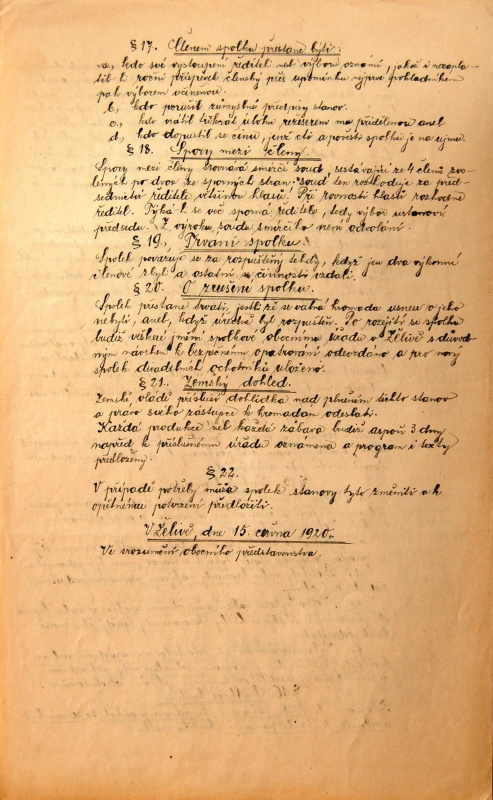 § 17. Členem spolku přestane býti:
a, kdo své vystoupení řediteli neb výboru oznámí, jakož i nezapla-
til-li roční příspěvek členský přes upomínku nejprve pokladníkem
pak výborem učiněnou.
b, kdo porušil zúmyslně předpisy stanov.
c, kdo vrátil třikrát úlohu režisérem mu přidělenou aneb
d, kdo dopustil se činu, jenž cti a pověsti spolku je na újmu.
§ 18. Spory mezi členy.
Spory mezi členy srovnává smírčí soud, sestávající ze 4 členů zvo-
lených po dvou ze sporných stran. Soud ten rozhoduje za před-
sednictví ředitele většinou hlasů. Při rovnosti hlasů rozhodne
ředitel. Týká-li se věc sporná ředitele, tedy výbor ustanoví
předsedu. Z výroku soudu smírčího není odvolání.
§ 19. Trvání spolku.
Spolek považuje se za rozpuštěný tehdy, když jen dva výkonní
členové zbyli a ostatní se činnosti vzdali.
§ 20. O zrušení spolku.
Spolek přestane trvati, jestliže se valná hromada usnese o jeho
nebytí, aneb, když úředně byl rozpuštěn. Po rozejití se spolku
budiž veškeré jmění spolkové obecnímu úřadu v Želivě s důvod-
ným návrhem k bezpečnému opatrování odevzdáno a pro nový
spolek divadelních ochotníků uloženo.
§ 21. Zemský dohled.
Zemské vládě přísluší dohlídka nad plněním těchto stanov
a právo svého zástupce k hromadám odeslati.
Každá produkce neb každá zábava budiž aspoň 3 dny
napřed k příslušnému úřadu oznámena a program i texty
předloženy.
§ 22.
V případě potřeby může spolek stanovy tyto změniti a k
opětnému potvrzení předložiti.
V Želivě, dne 15. června 1920.
Ve srozumění obecního představenstva.